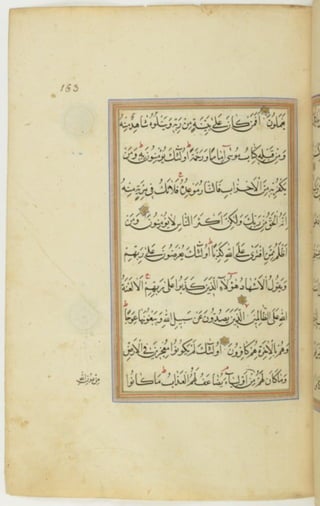 153
يعملون أفمن كان على بينة من ربه ويتلوه شاهد منه
ومن قبله كتاب موسى إماما ورحمة أولئك يؤمنون به ومن
يكفر به من الأحزاب فالنار موعده فلا تك في مرية منه
إنه الحق من ربك ولكن أكثر الناس لا يؤمنون ومن
أظلم ممن افترى على الله كذبا أولئك يعرضون على ربهم
ويقول الأشهاد هؤلاء الذين كذبوا على ربهم ألا لعنة
الله على الظالمين الذين يصدون عن سبيل الله ويبغونها عوجا
وهم بالآخرة هم كافرون أولئك لم يكونوا معجزين في الأرض
وما كان لهم من دون الله من أولياء يضاعف لهم العذاب ما كانوا